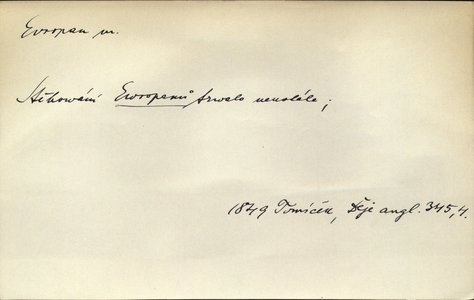 Evropan m.
Stěhowání Ewropanů trwalo neustále;
1849 Tomíček, Děje angl. 345,4.